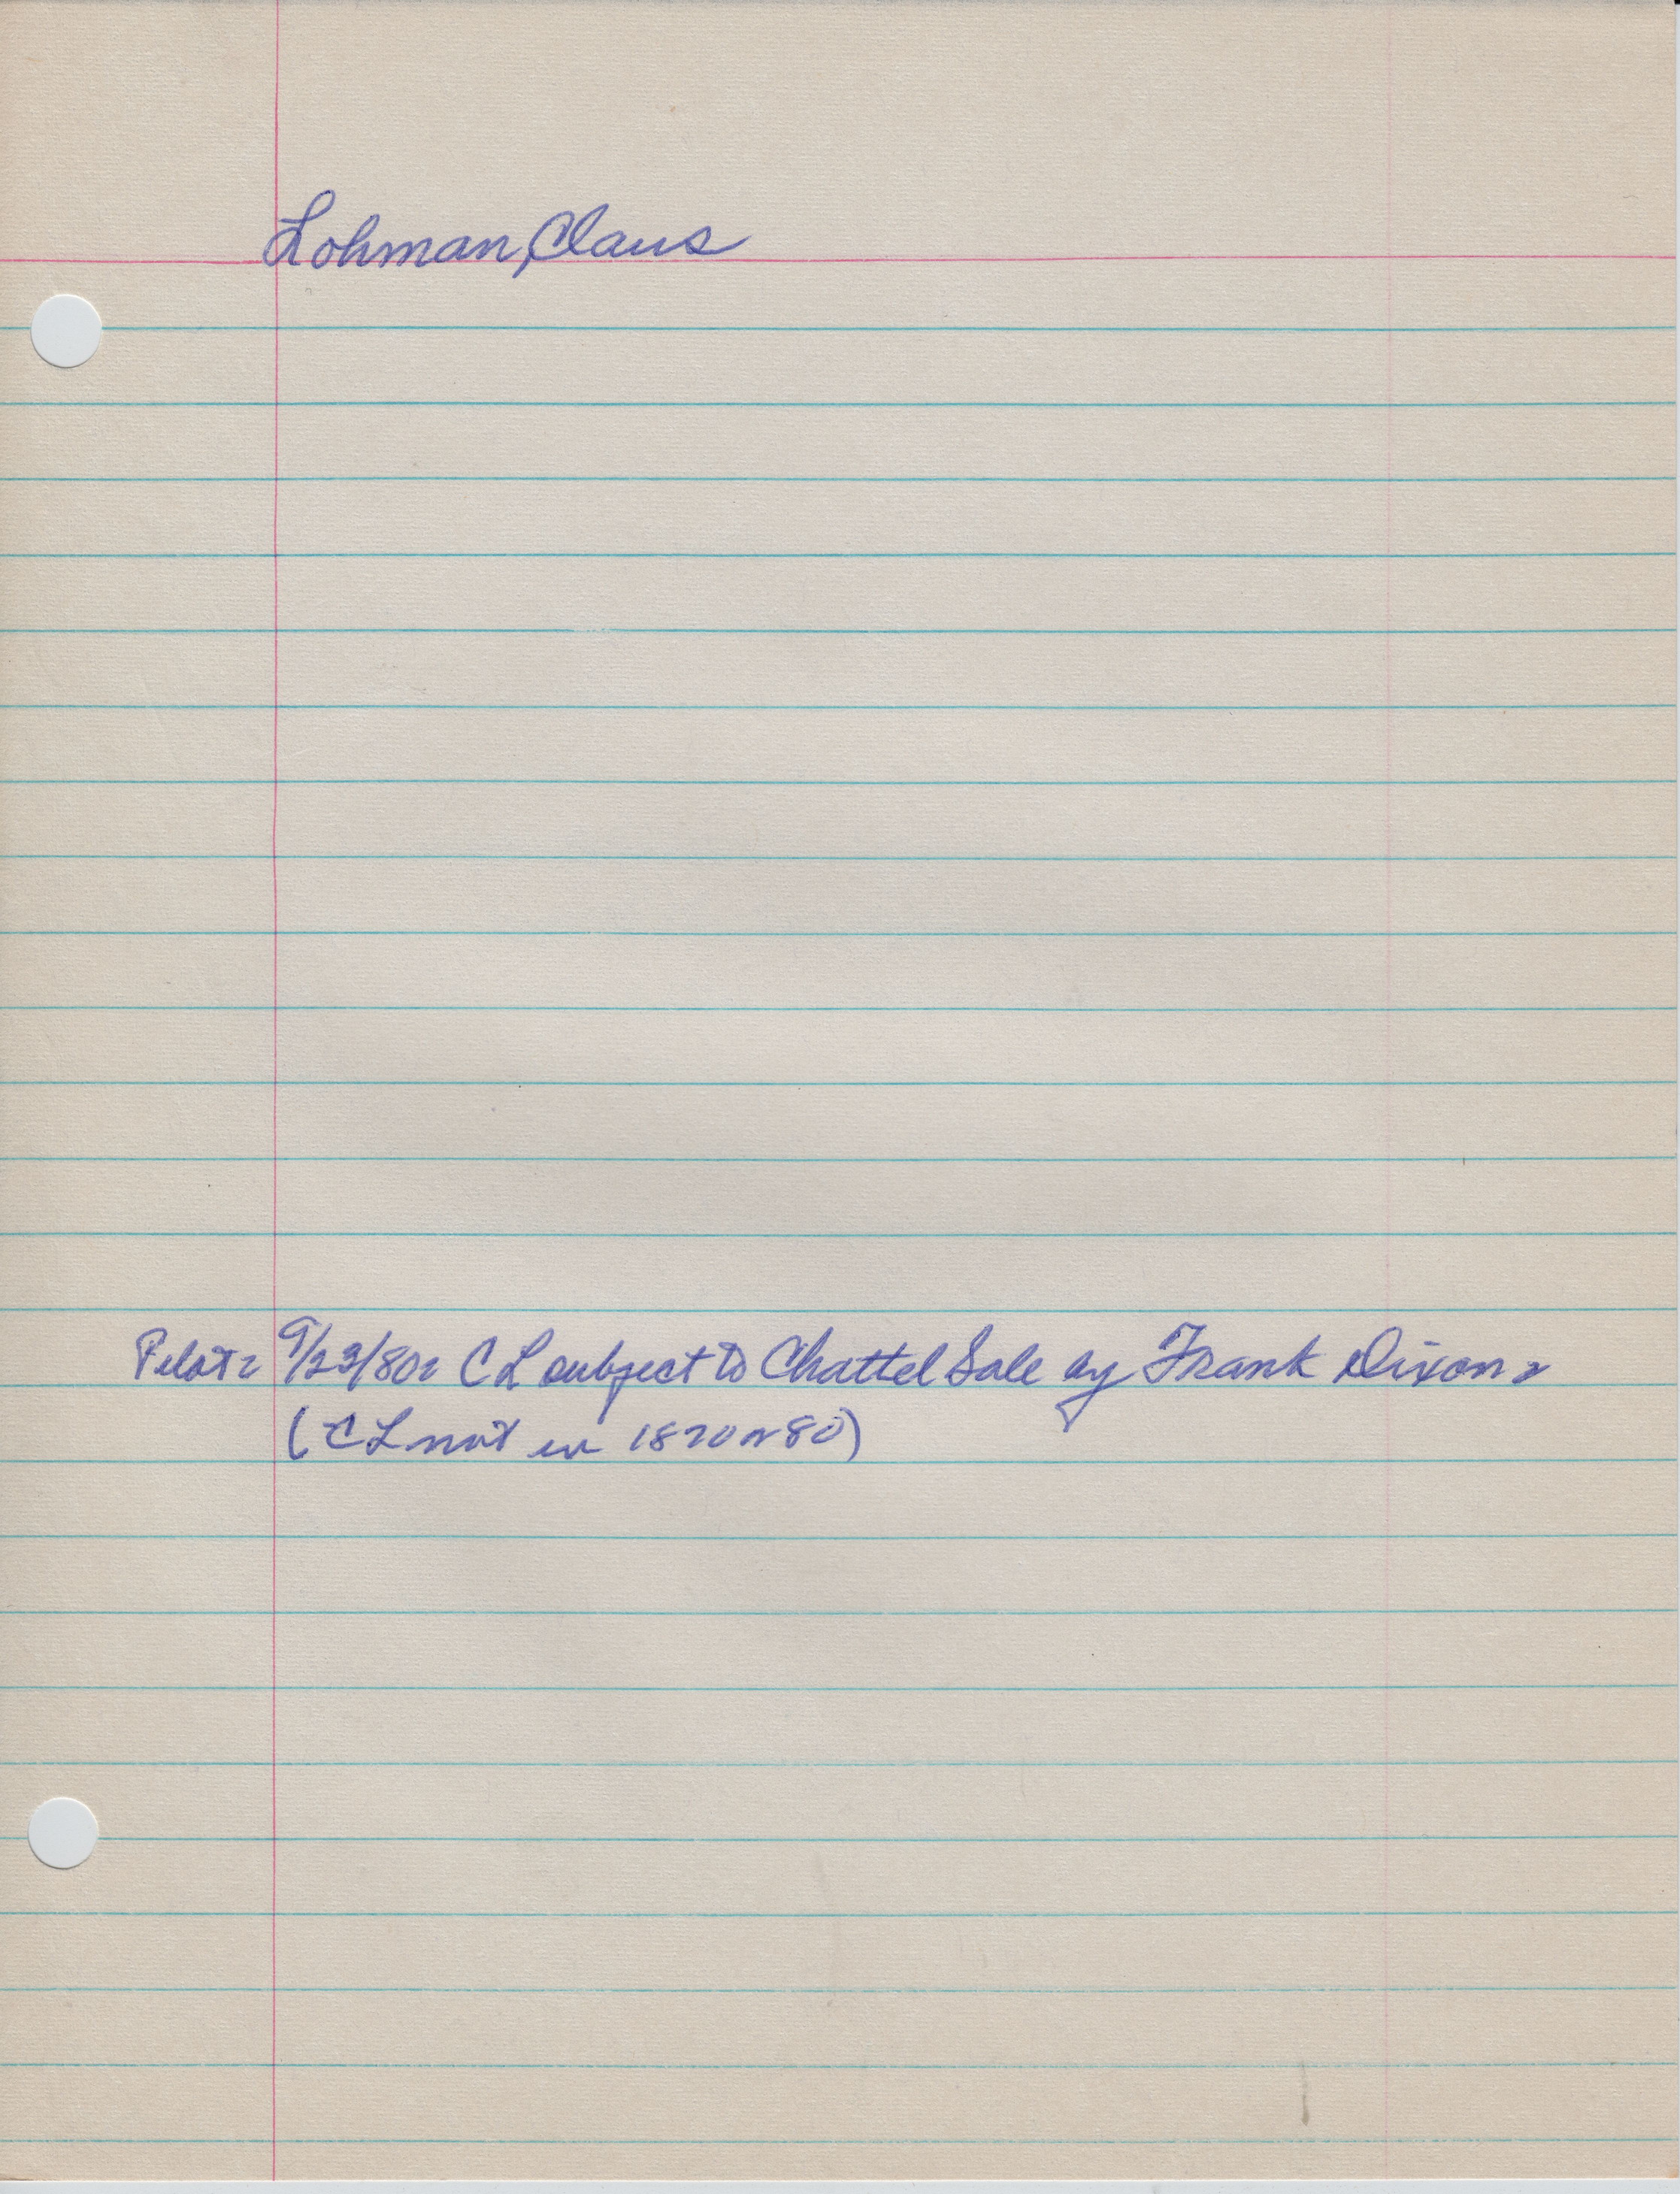 Lohman, Claus
Pilot: 9/23/80: CL subject to Chattel Sale by Frank Dixon:
(CL not in 1870 or 80)